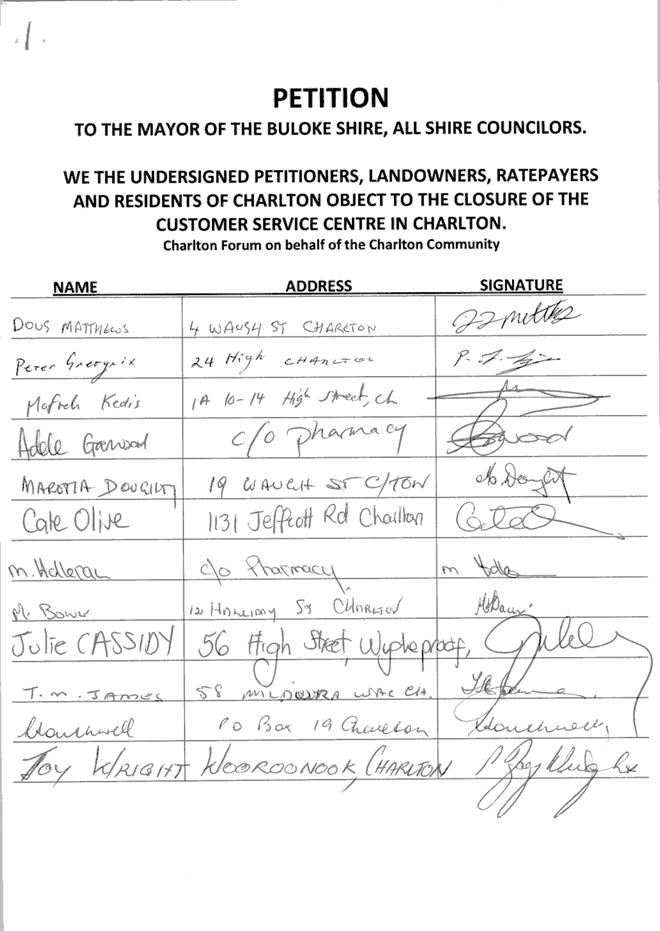 1.
PETITION
TO THE MAYOR OF THE BULOKE SHIRE, ALL SHIRE COUNCILORS.
WE THE UNDERSIGNED PETITIONERS, LANDOWNERS, RATEPAYERS
AND RESIDENTS OF CHARLTON OBJECT TO THE CLOSURE OF THE
CUSTOMER SERVICE CENTRE IN CHARLTON.
Charlton Forum on behalf of the Charlton Community
NAME ADDRESS SIGNATURE
DOUG MATTHEWS 4 WAUGH ST CHARLTON
Peter 24 High CHARLTON
Kedis 1A 10-14 High Street, Ch
Adele c/o pharmacy
DOUGHTY 19 WAUGH ST C/TON
Cate Olive 1131 Jeffcott Rd Charlton
M. c/o Pharmacy m
M. 12 HALLIDAY ST CHARLTON
Julie CASSIDY 56 High Street, Wycheproof,
T. M. JAMES 58 MILDURA WAY CH.
PO Box 19 Charlton
JOY WRIGHT WOOROONOOK, CHARLTON Joy Wright